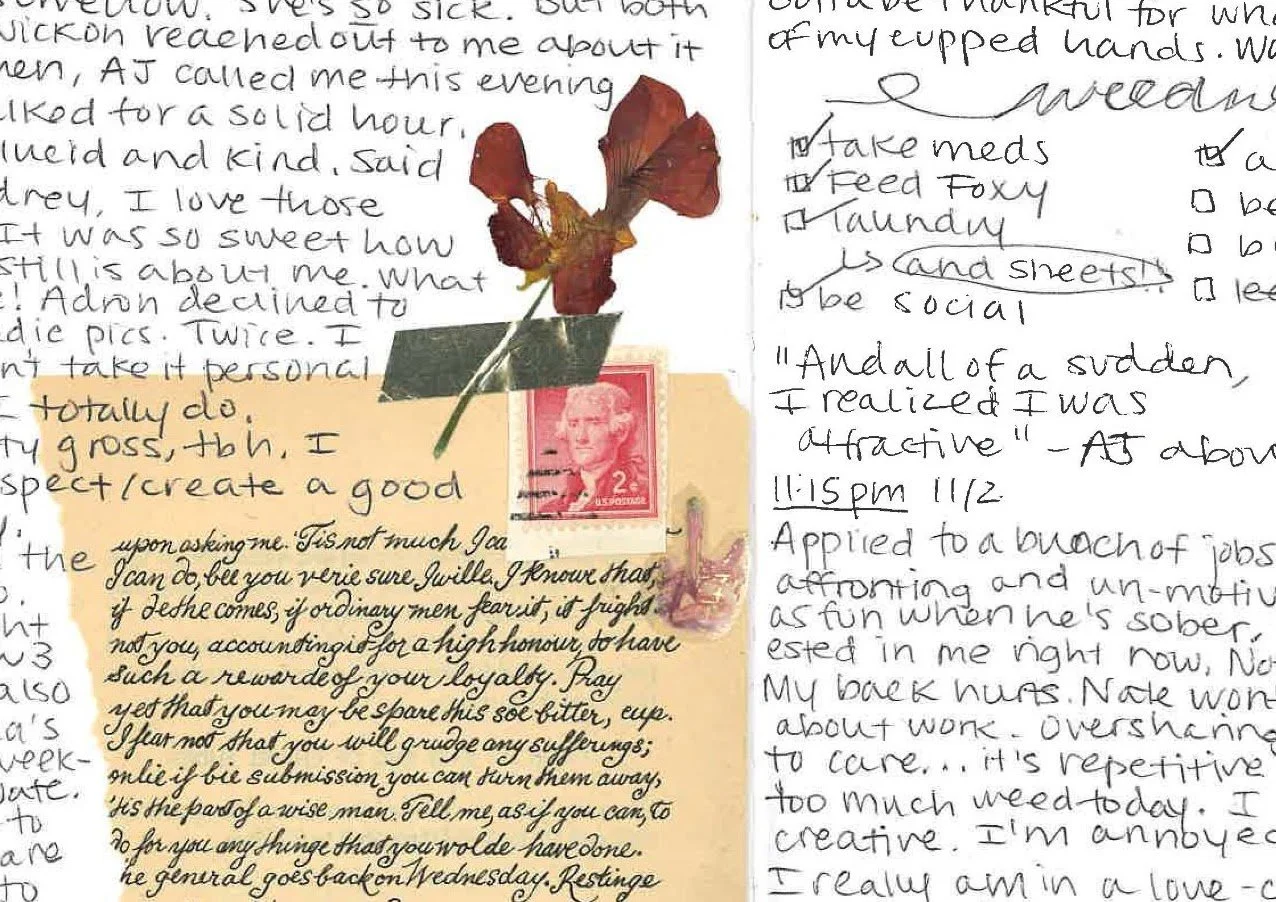 She's so sick. But both
reached out to me about it
AJ called me this evening
for a solid hour.
lucid and kind. Said
I love those
It was so sweet how
still is about me. What
! Adron declined to
pics. Twice. I
take it personal
I totally do.
gross, tbh. I
spect/create a good
the
3
also
week-
to
are
to
upon asking me. 'Tis not much I ca
I can do, bee you verie sure I wille. I knowe that,
if dethe comes, if ordinary men fear it, it fright
not you, accounting it for a high honour, to have
such a rewarde of your loyalty. Pray
yet that you may be spare this soe bitter, cup.
I fear not that you will grudge any sufferings;
onlie if bie submission you can turn them away,
'tis the part of a wise man. Tell me, as if you can, to
do for you any thinge that you wolde have done.
he general goes back on Wednesday. Restinge
2¢
U.S. POSTAGE
thankful for
of my cupped hands.
take meds
Feed Foxy
laundry
and sheets!!
be social
a
be
b
"And all of a sudden,
I realized I was
attractive" - AJ abou
11:15pm 11/2
Applied to a bunch of jobs
affronting and un-motiv
as fun when he's sober.
ested in me right now. No
My back hurts. Nate won
about work. Oversharing
to care... it's repetitive
too much weed today. I
creative. I'm annoyed
I really am in a love-